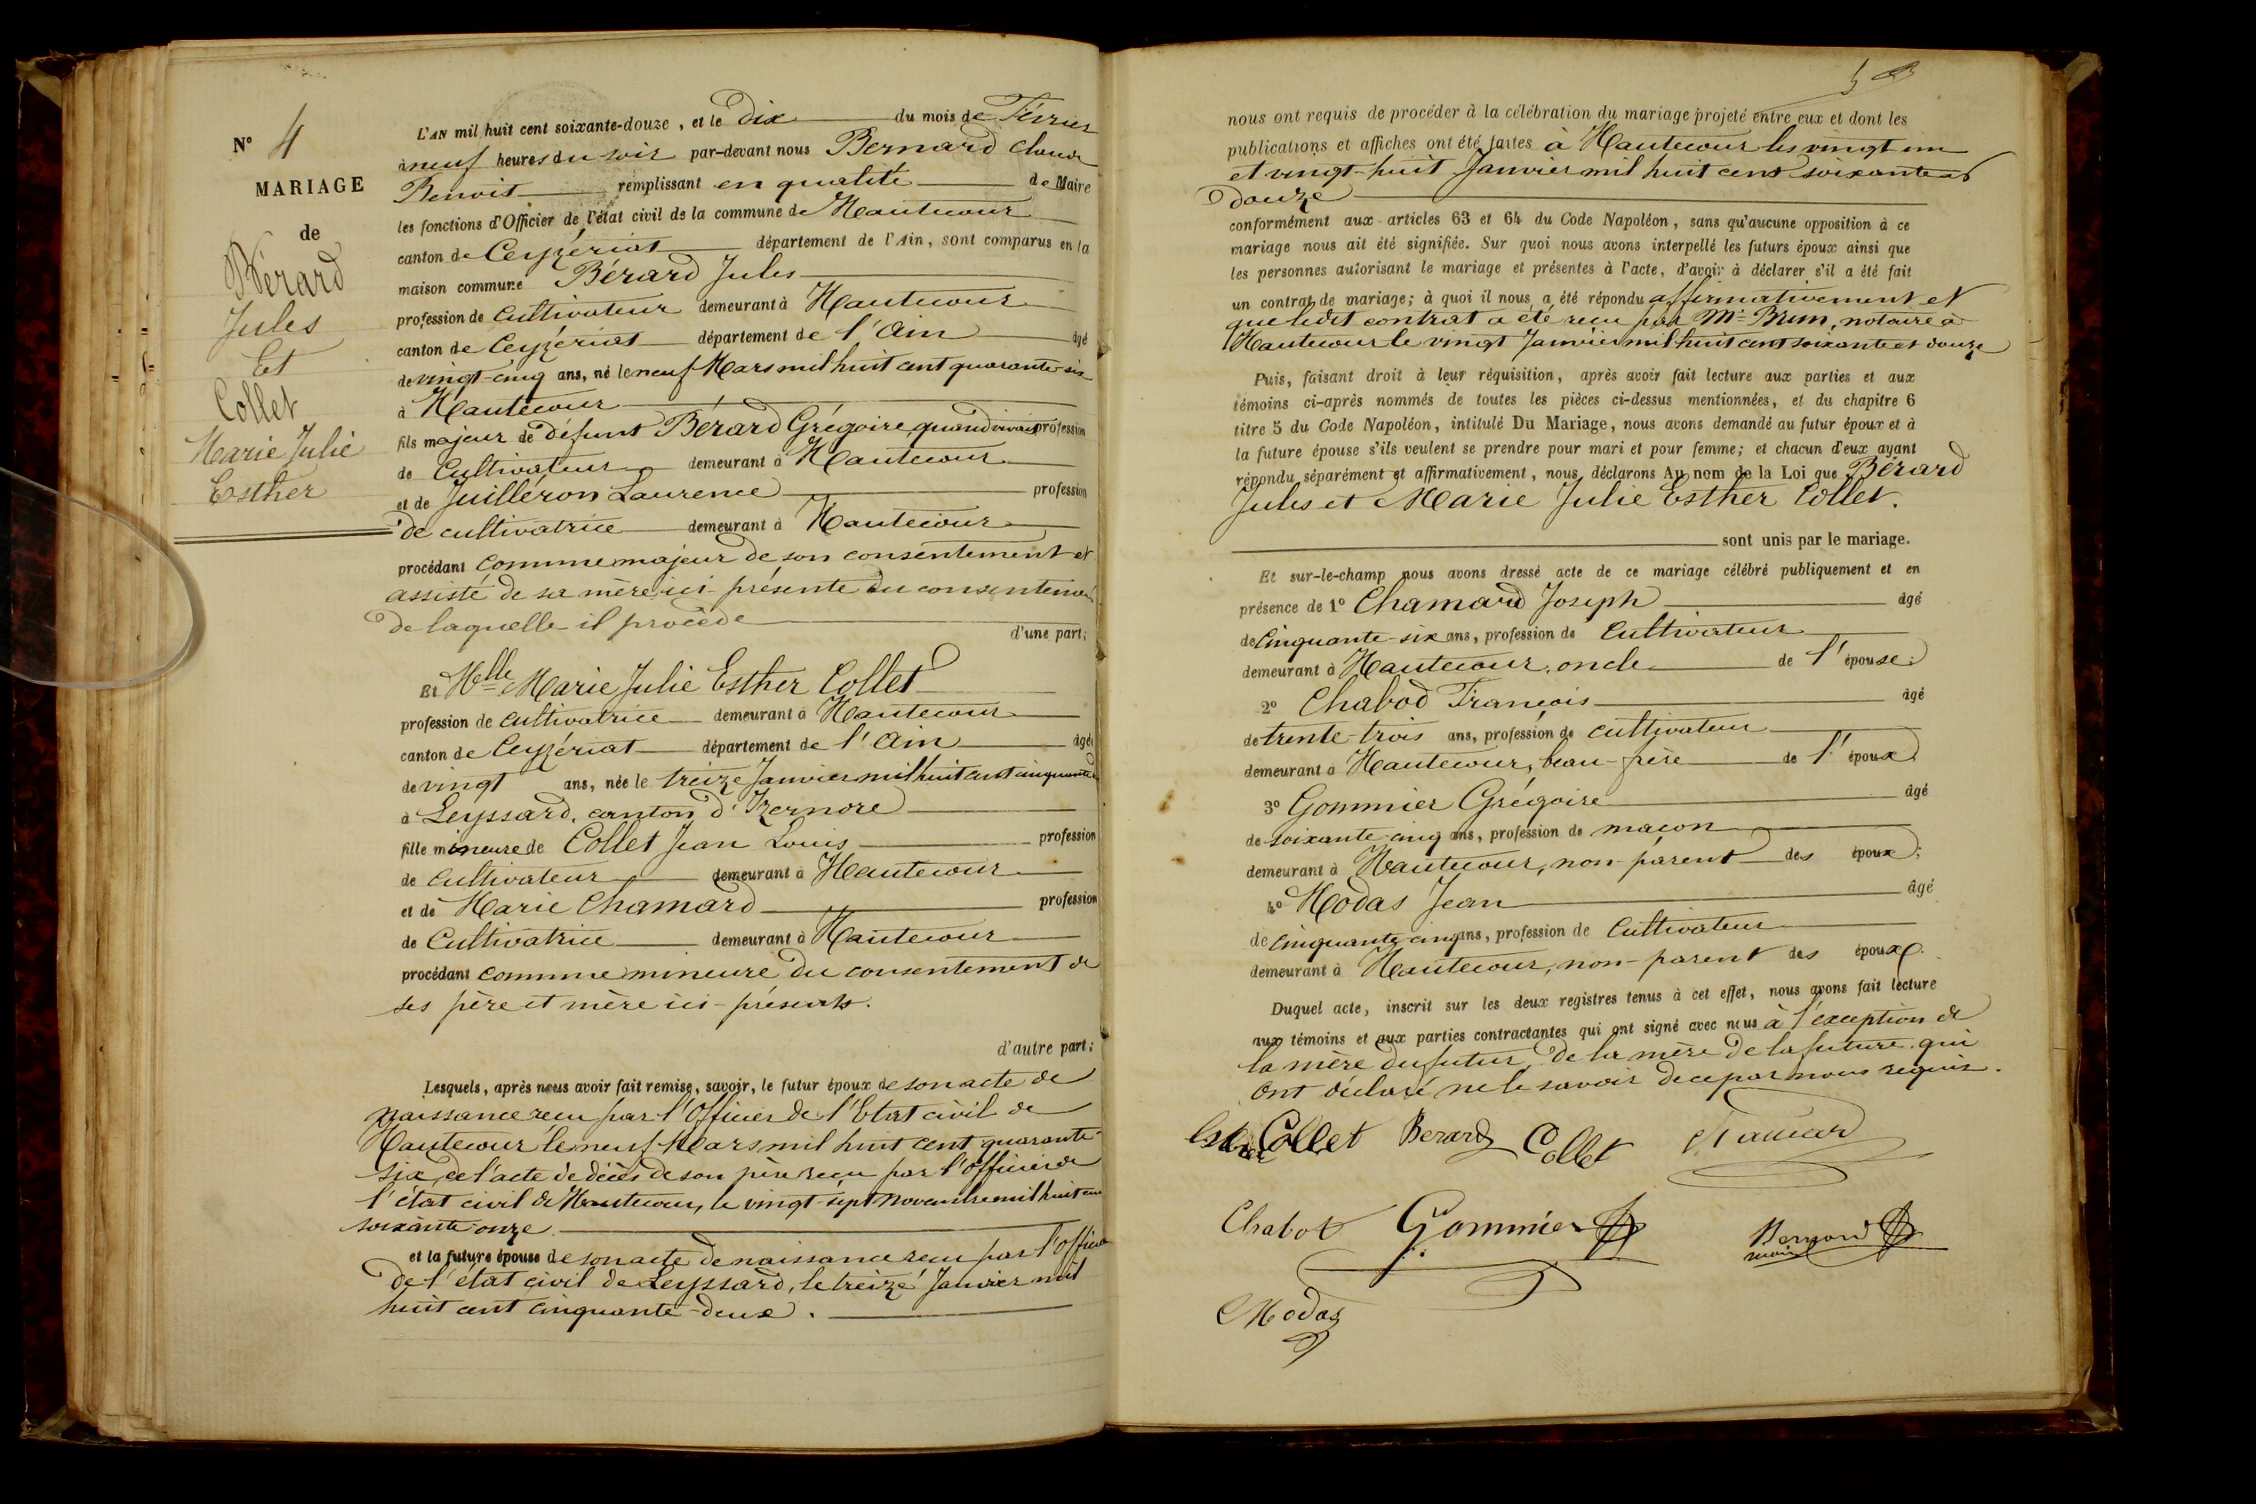 N° 4
MARIAGE
de
Bérard
Jules
Et
Collet
Marie Julie
Esther
L'AN mil huit cent soixante-douze, et le Dix du mois de Février
à neuf heures du soir par-devant nous Bernard Claude
Benoit remplissant en qualité de Maire
les fonctions d'Officier de l'état civil de la commune de Hautecour
canton de Ceyzériat département de l'Ain, sont comparus en la
maison commune Bérard Jules
profession de cultivateur demeurant à Hautecour
canton de Ceyzériat département de l'Ain âgé
de vingt-cinq ans, né le neuf Mars mil huit cent quarante-six
à Hautecour
fils majeur de défunt Bérard Grégoire, quand vivait profession
de Cultivateur demeurant à Hautecour
et de Juilléron Laurence profession
de cultivatrice demeurant à Hautecour
procédant comme majeur de son consentement et
assisté de sa mère ici présente du consentement
de laquelle il procède
d'une part;
Et Melle Marie Julie Esther Collet
profession de cultivatrice demeurant à Hautecour
canton de Ceyzériat département de l'Ain âgée
de vingt ans, née le treize Janvier mil huit cent cinquante
à Leyssard, canton d'Izernore
fille mineure de Collet Jean Louis profession
de cultivateur demeurant à Hautecour
et de Marie Chamard profession
de Cultivatrice demeurant à Hautecour
procédant comme mineure du consentement de
ses père et mère ici-présents.
d'autre part;
Lesquels, après nous avoir fait remise, savoir, le futur époux de son acte de
naissance reçu par l'Officier de l'Etat civil de
Hautecour le neuf Mars mil huit cent quarante-
six, de l'acte de décès de son père reçu par l'officier de
l'état civil de Hautecour, le vingt-sept Novembre mil huit cent
soixante-onze
et la future épouse de son acte de naissance reçu par l'officier
de l'état civil de Leyssard, le treize Janvier mil
huit cent cinquante-deux.
nous ont requis de procéder à la célébration du mariage projeté entre eux et dont les
publications et affiches ont été faites à Hautecour les vingt un
et vingt-huit Janvier mil huit cent soixante et
douze
conformément aux articles 63 et 64 du Code Napoléon, sans qu'aucune opposition à ce
mariage nous ait été signifiée. Sur quoi nous avons interpellé les futurs époux ainsi que
les personnes autorisant le mariage et présentes à l'acte, d'avoir à déclarer s'il a été fait
un contrat de mariage; à quoi il nous a été répondu affirmativement et
que ledit contrat a été reçu par Me Brun, notaire à
Hautecour le vingt Janvier mil huit cent soixante et douze
Puis, faisant droit à leur réquisition, après avoir fait lecture aux parties et aux
témoins ci-après nommés de toutes les pièces ci-dessus mentionnées, et du chapitre 6
titre 5 du Code Napoléon, intitulé Du Mariage, nous avons demandé au futur époux et à
la future épouse s'ils veulent se prendre pour mari et pour femme; et chacun d'eux ayant
répondu séparément et affirmativement, nous déclarons Au nom de la Loi que Bérard
Jules et Marie Julie Esther Collet.
sont unis par le mariage.
Et sur-le-champ nous avons dressé acte de ce mariage célébré publiquement et en
présence de 1° Chamard Joseph âgé
de Cinquante-six ans, profession de Cultivateur
demeurant à Hautecour, oncle de l'épouse;
2° Chabod François âgé
de trente-trois ans, profession de cultivateur
demeurant à Hautecour, beau-frère de l'époux
3° Gommier Grégoire âgé
de soixante-cinq ans, profession de maçon
demeurant à Hautecour, non-parent des époux;
4° Modas Jean âgé
de Cinquante cinq ans, profession de Cultivateur
demeurant à Hautecour, non-parent des époux.
Duquel acte, inscrit sur les deux registres tenus à cet effet, nous avons fait lecture
aux témoins et aux parties contractantes qui ont signé avec nous à l'exception de
la mère du futur, de la mère de la future qui
ont déclaré ne le savoir de ce par nous requis.
Collet Berard Collet
Chabot Gommier Bernard
maire
Modas